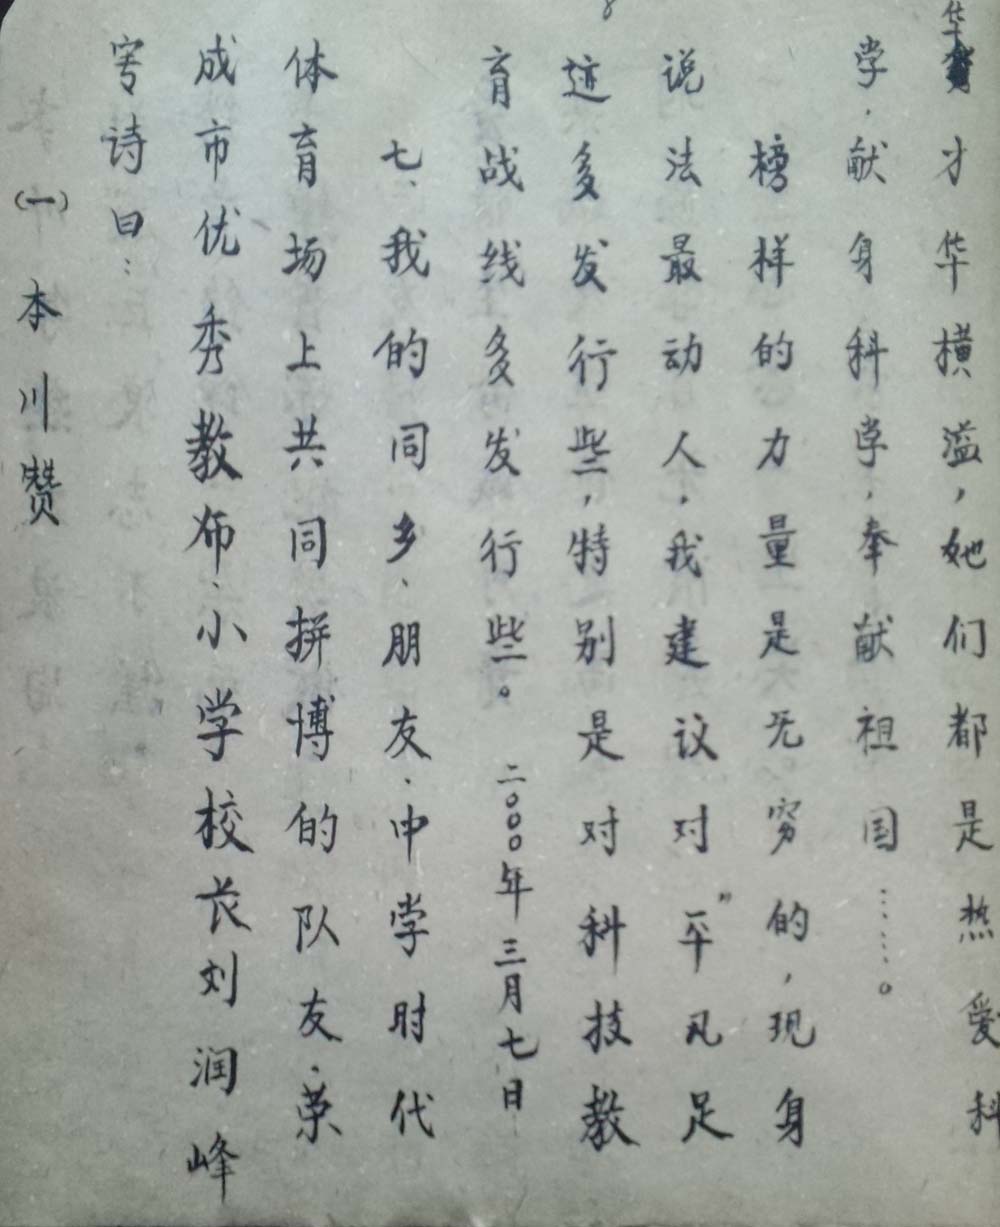 华才华横溢，她们都是热爱科
学．献身科学，奉献祖国……。
榜样的力量是无穷的，现身
说法最动人，我建议对"平凡足
迹多发行些，特别是对科技教
育战线多发行些。二〇〇〇年三月七日
七、我的同乡、朋友、中学时代
体育场上共同拼博的队友、荣
成市优秀教师、小学校长刘润峰
写诗曰：
(一)本川赞